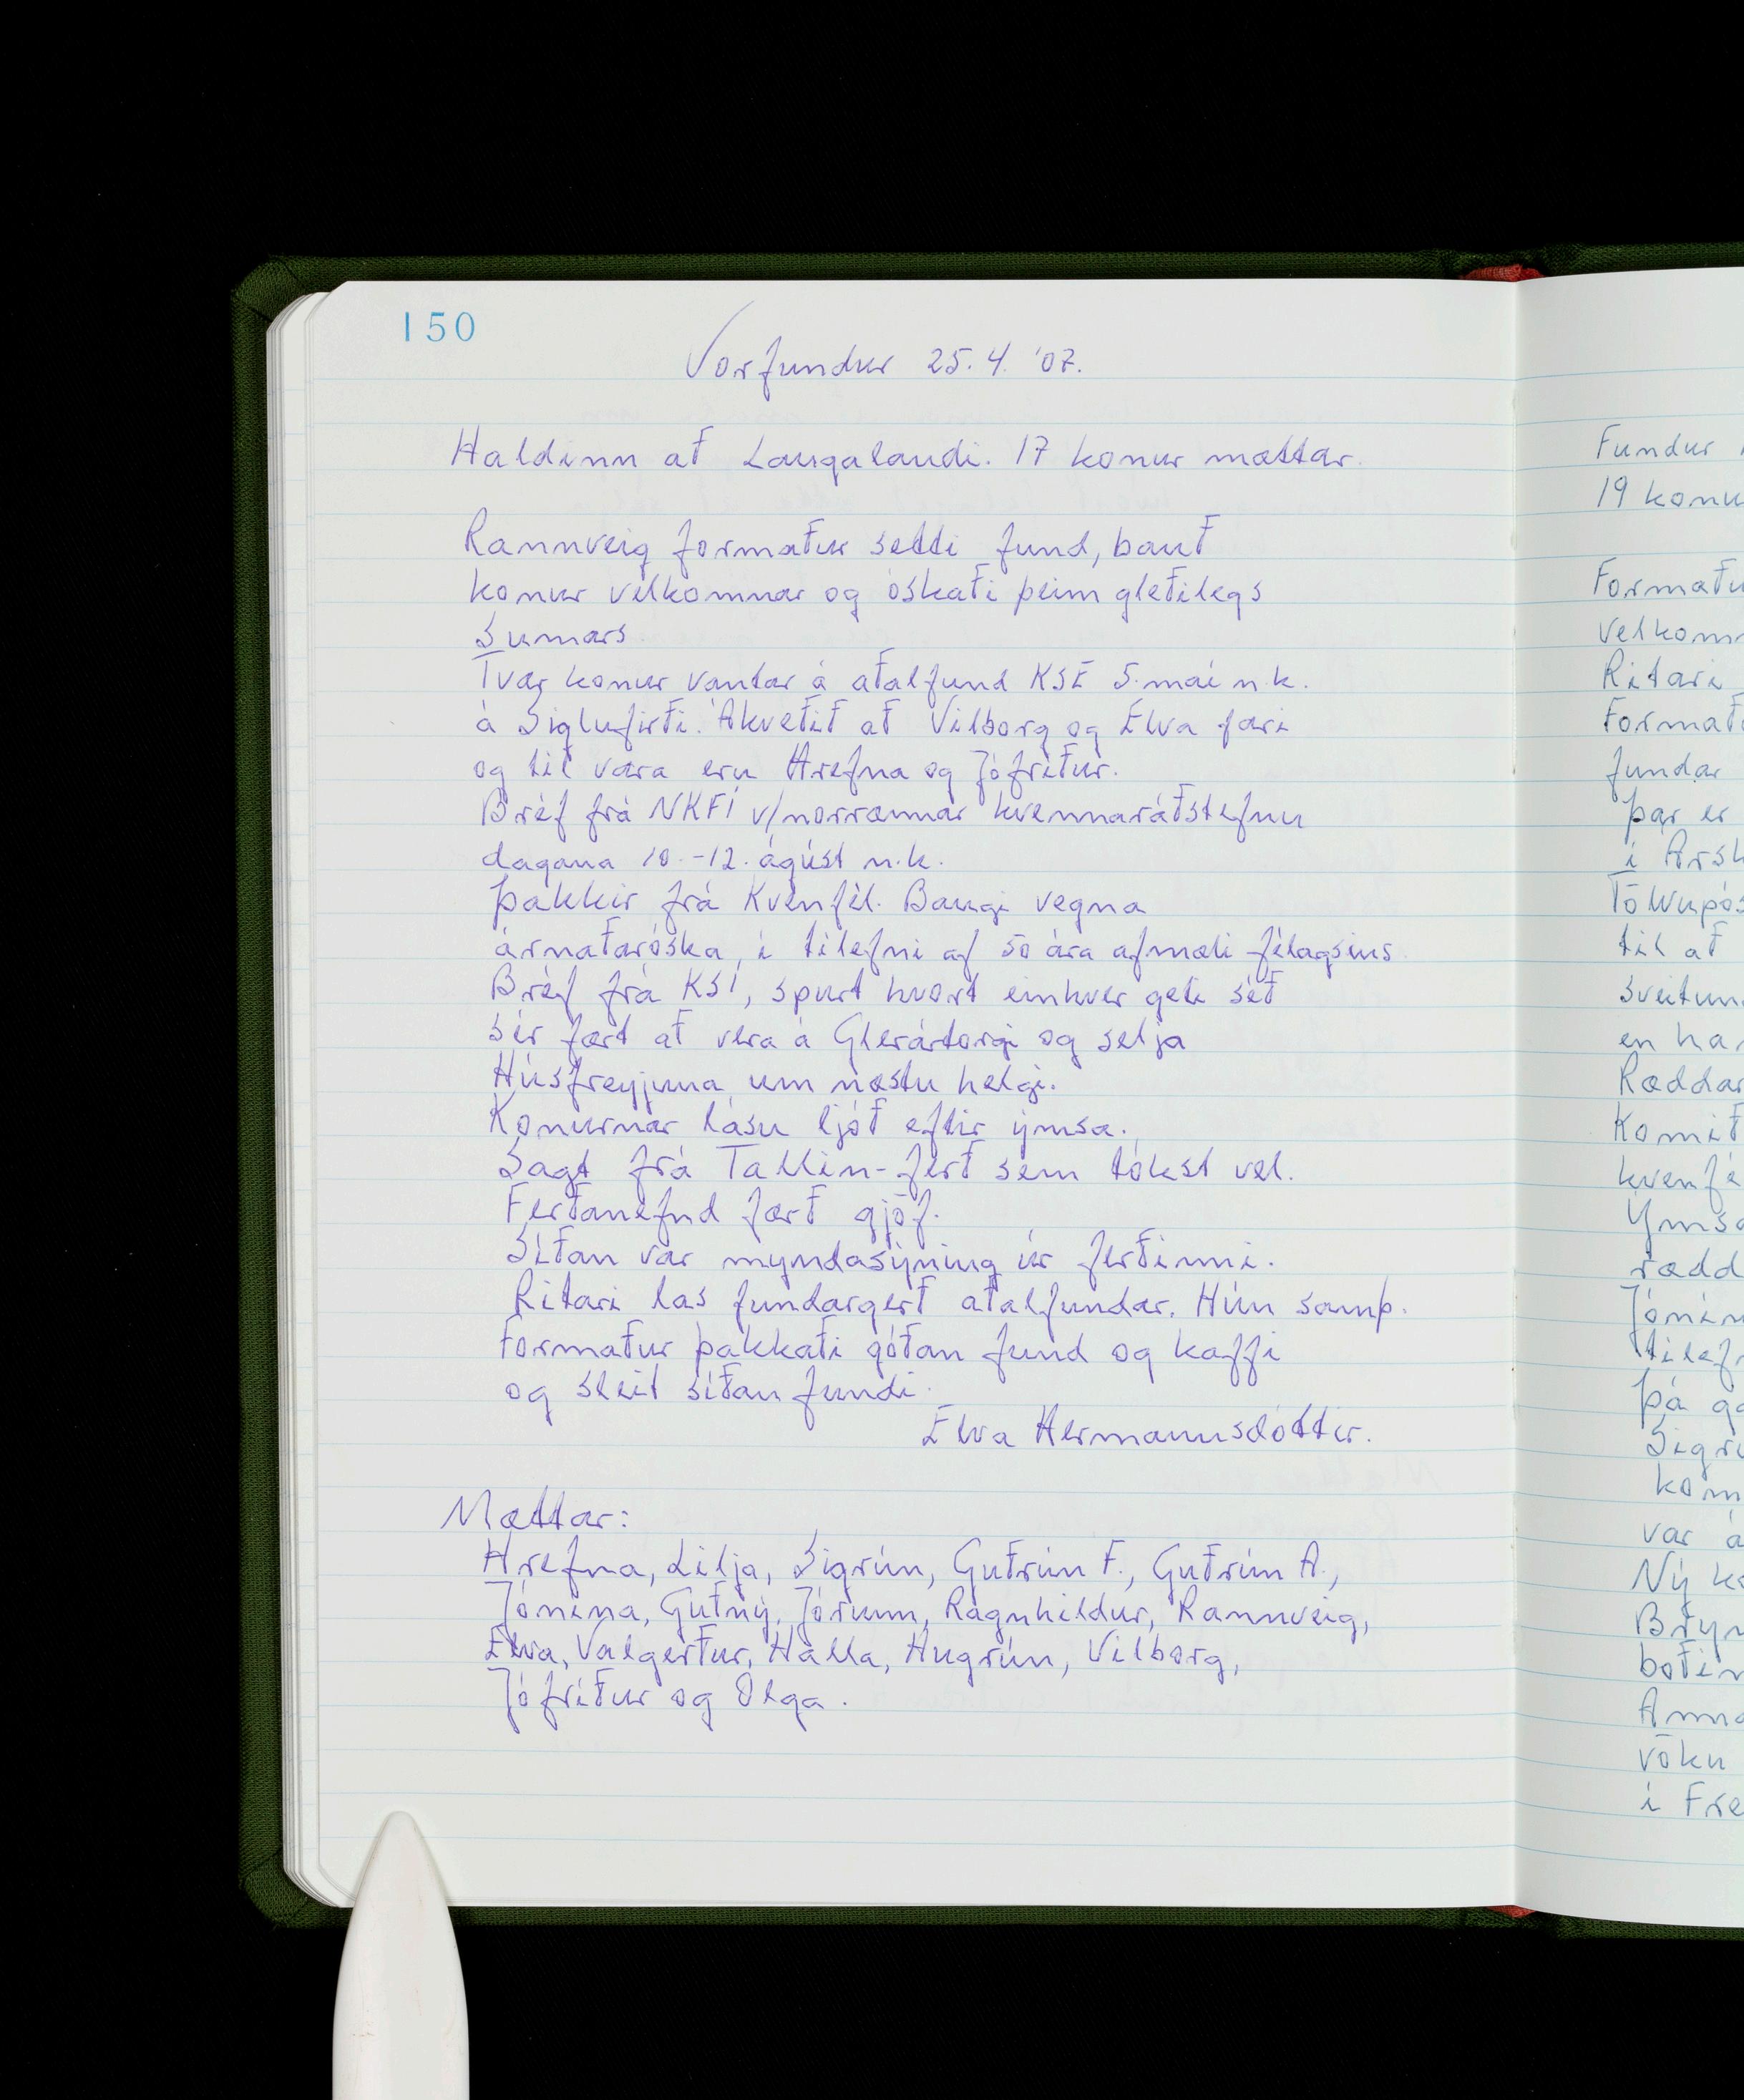 150
Vorfundur 25.4. '07.
Haldinn að Laugalandi. 17 konur mættar.
Rannveig formaður setti fund, bauð
konur velkomnar og óskaði þeim gleðilegs
sumars.
Tvær konur vantar á aðalfund KSE 5. maí n.k.
á Siglufirði. Ákveðið að Vilborg og Elva fari
og til vara eru Hrefna og Jófríður.
Bréf frá NKFÍ v/norrænnar kvennaráðstefnu
dagana 10.-12. ágúst n.k.
Þakkir frá Kvenfél. Baugi vegna
árnaðaróska, í tilefni af 50 ára afmæli félagsins.
Bréf frá KSÍ, spurt hvort einhver geti séð
sér fært að vera á Glerártorgi og selja
Húsfreyjuna um næstu helgi.
Konurnar lásu ljóð eftir ýmsa.
Sagt frá Tallin-ferð sem tókst vel.
Ferðanefnd færð gjöf.
Síðan var myndasýning úr ferðinni.
Ritari las fundargerð aðalfundar. Hún samþ.
Formaður þakkaði góðan fund og kaffi
og sleit síðan fundi.
Elva Hermannsdóttir.
Mættar:
Hrefna, Lilja, Sigrún, Guðrún F., Guðrún A.,
Jónína, Guðný, Jórunn, Ragnhildur, Rannveig,
Elva, Valgerður, Halla, Hugrún, Vilborg,
Jófríður og Olga.
Fundur
19 konu
Formaðu
Velkom
Ritari
Formað
fundar
Þar er
í Ársk
Tölvupós
til að
sveitun
en ha
Ræddar
Komið
kvenfé
Ýmsa
rædd
Jónín
tilef
Þá ga
Sigrú
kom
var á
Ný ko
Bryn
boðin
Anna
vöku
í Fre